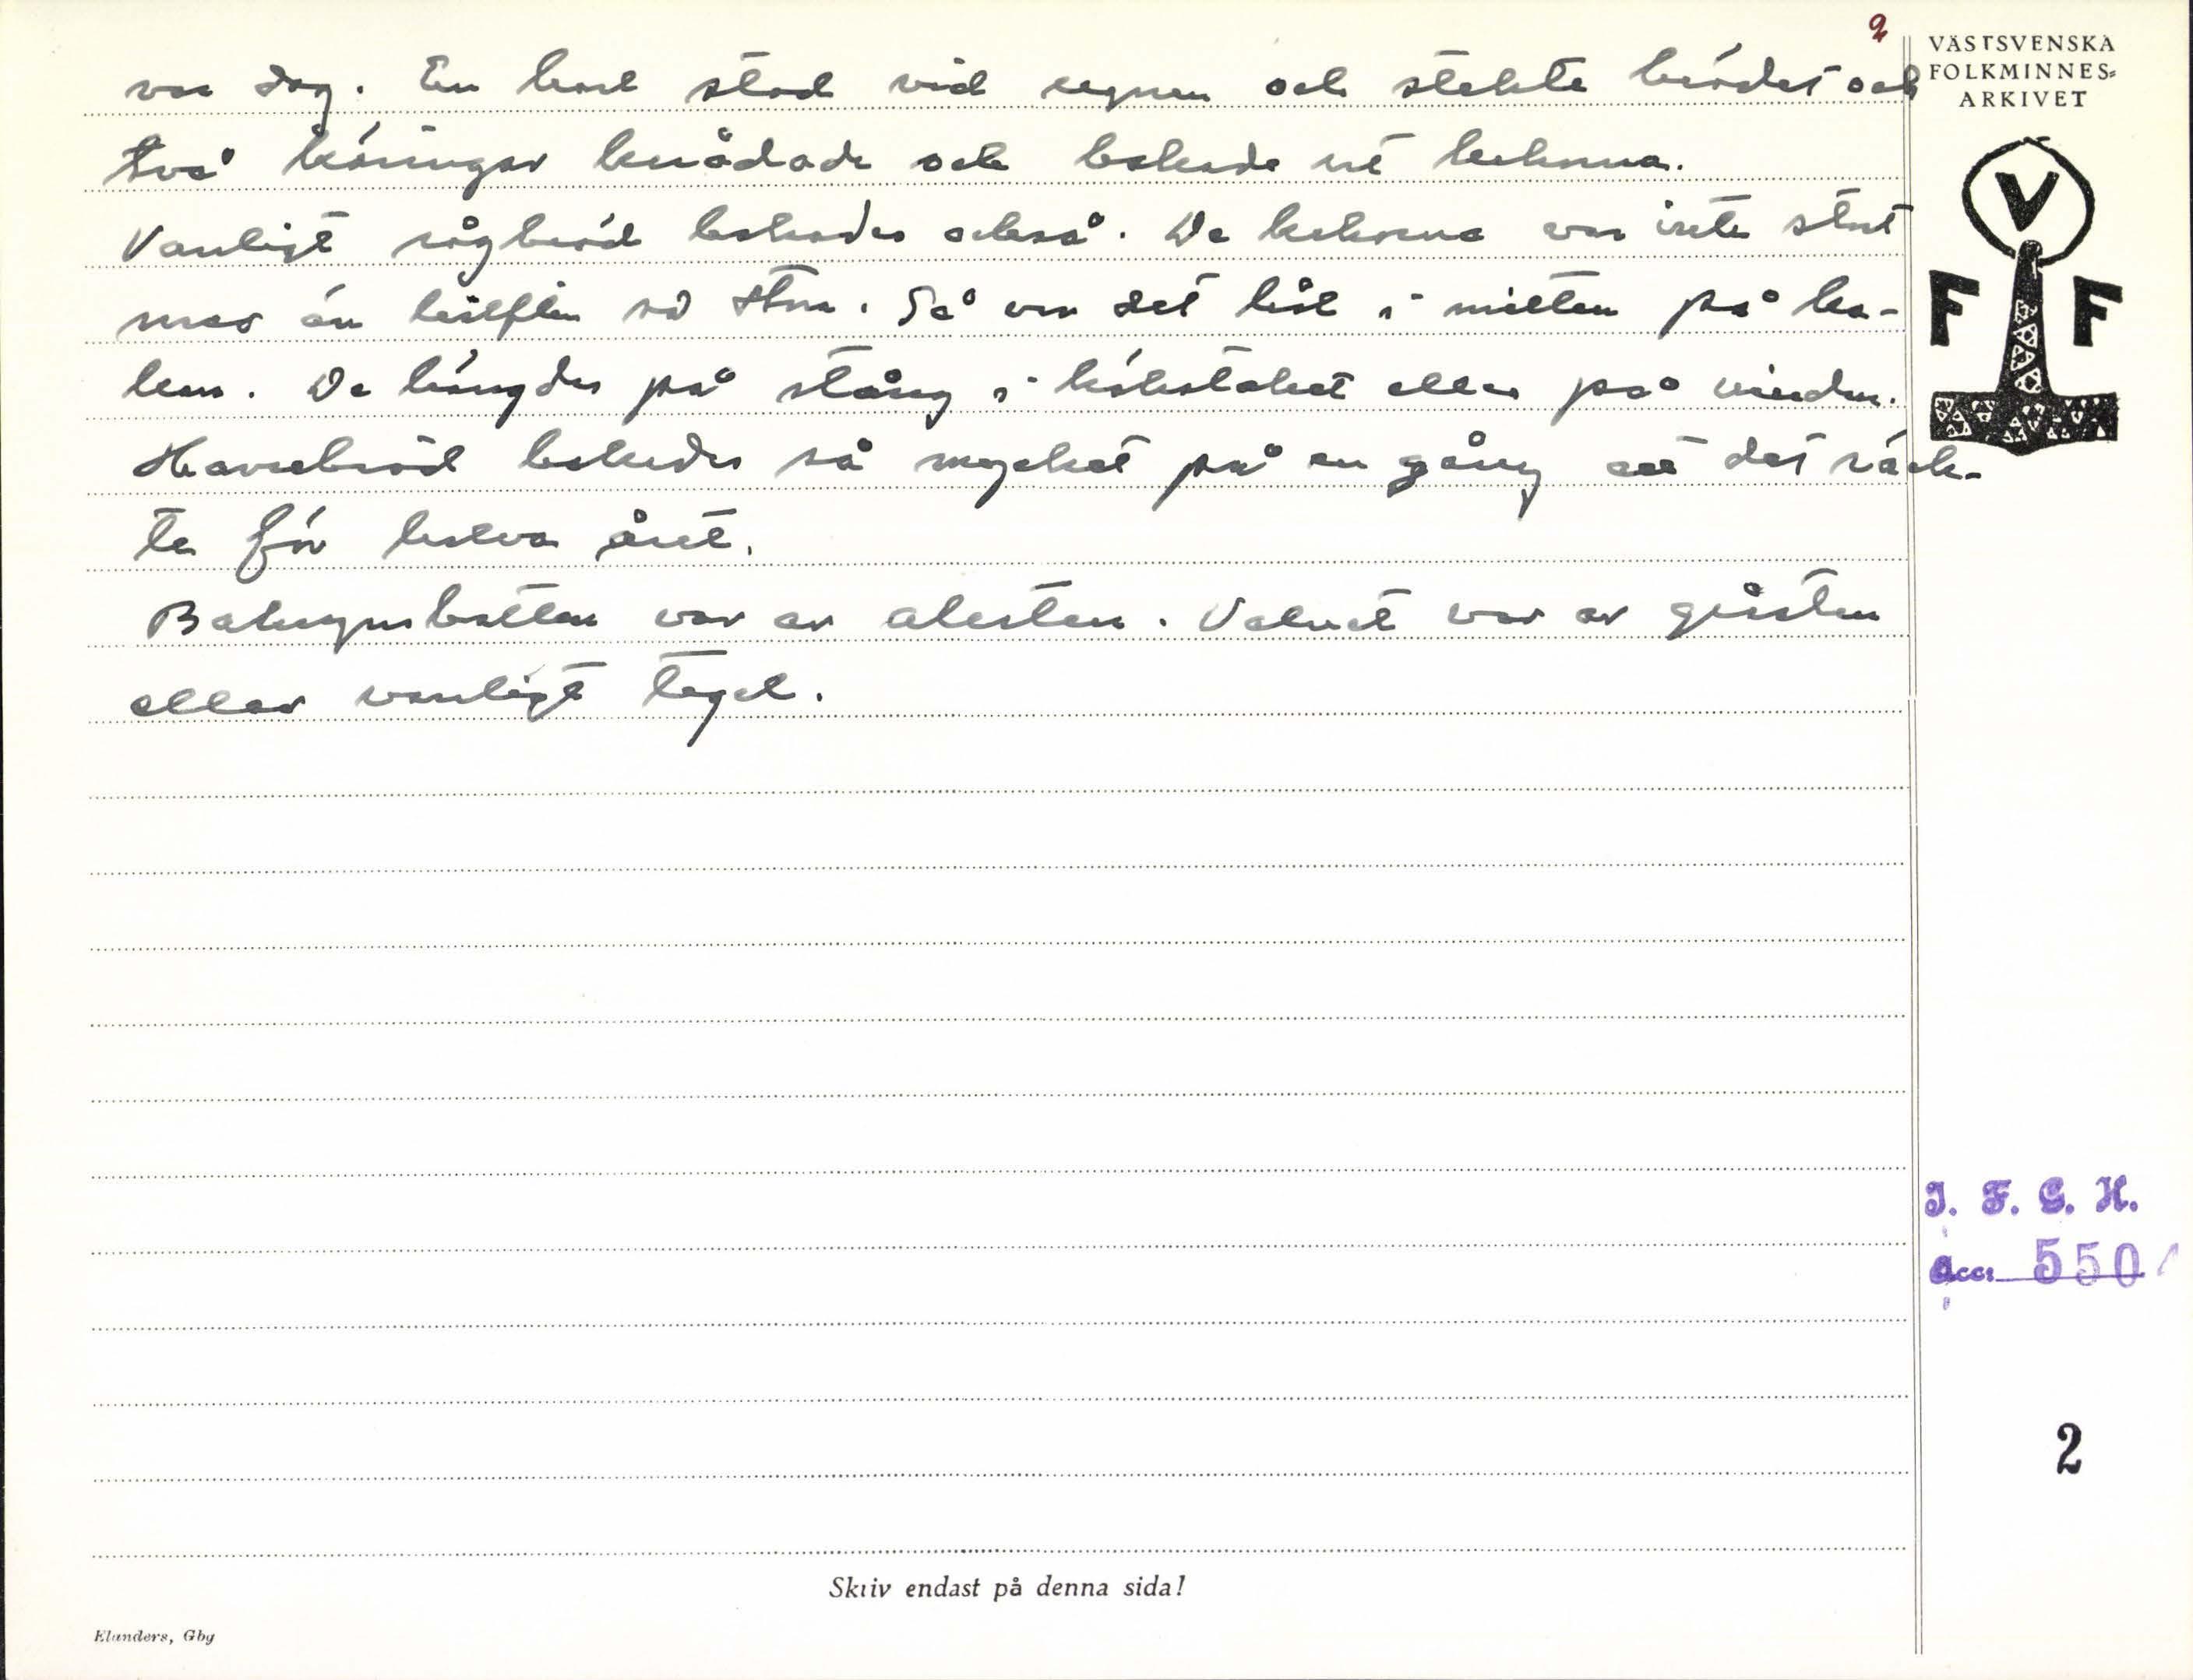 2
var dag. En karl stod vid ugnen och stekte brödet och
två käringar knådade och bakade ut kakorna.
Vanligt rågbröd bakades också. De kakorna var inte stort
mer än hälften så stora. Så var det hål i mitten på ka-
kan. De hängdes på stång i kökstaket eller på vinden.
Havrebröd bakades så mycket på en gång att det räck-
te för halva året.
Bakugnsbotten var av alesten. Valvet var av gråsten
eller vanligt tegel.
VÄSTSVENSKA
FOLKMINNES=
ARKIVET
V
F F
I. F. G. H.
Acc. 550
2
Skriv endast på denna sida!
Elanders, Gbg